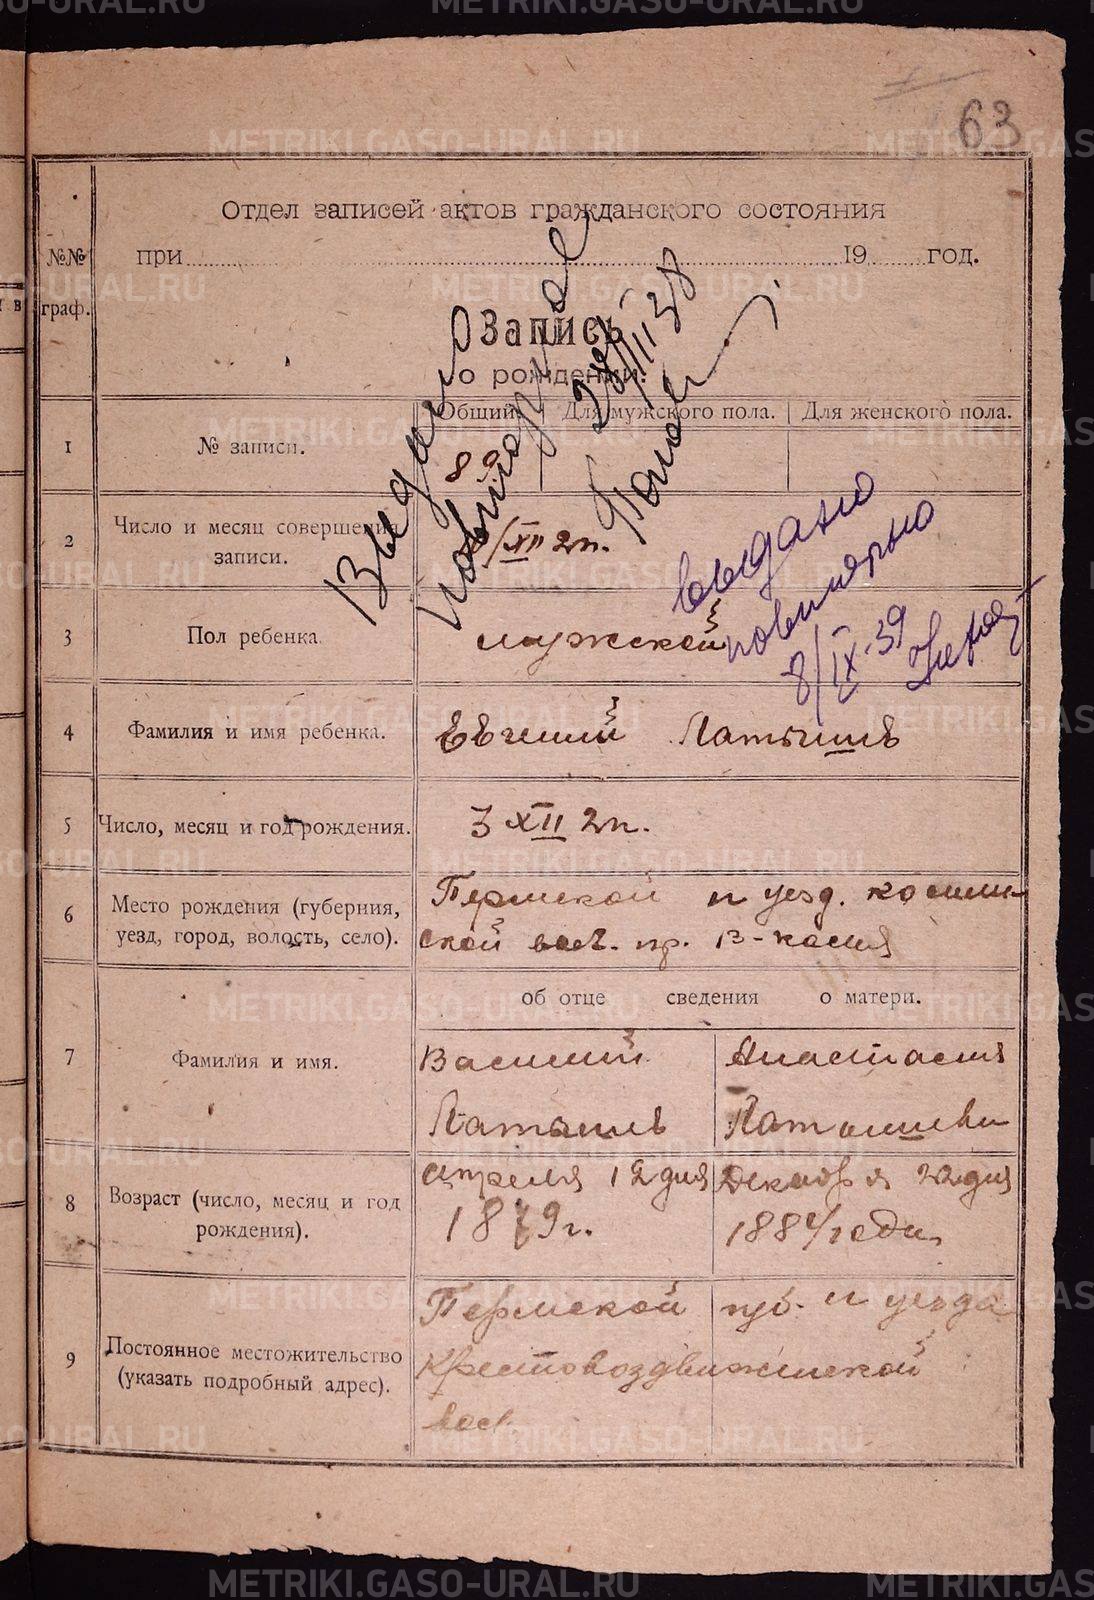 63
Отдел записей актов гражданского состояния
при 19 год.
№№ граф.
Запись
о рождении.
Общий. Для мужского пола. Для женского пола.
1 № записи. 89
2 Число и месяц совершения записи. /XII 2г.
3 Пол ребенка. мужской
4 Фамилия и имя ребенка. Евгений Латышъ
5 Число, месяц и год рождения. 3 XII 2г.
6 Место рождения (губерния, Пермской и уезд.
уезд, город, волость, село). ской вол. В-
об отце сведения о матери.
7 Фамилия и имя. Василий Анастасия
Латышъ
8 Возраст (число, месяц и год апреля 12 дня Декабря дня
рождения). 1879г. 1884 года
9 Постоянное местожительство Пермской губ. и уезда
(указать подробный адрес). Крестовоздвиженской
вол.
Выдано
повторное
28/II 38
выдано
повторно
8/IX-39
METRIKI.GASO-URAL.RU